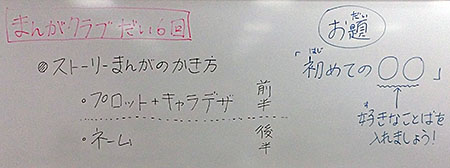 まんがクラブだい6回
◎ストーリーまんがのかき方
・プロット+キャラデザ 前半
・ネーム 後半
お題
だい
「初めての○○」
はじ
好きなことばを
す
入れましょう!